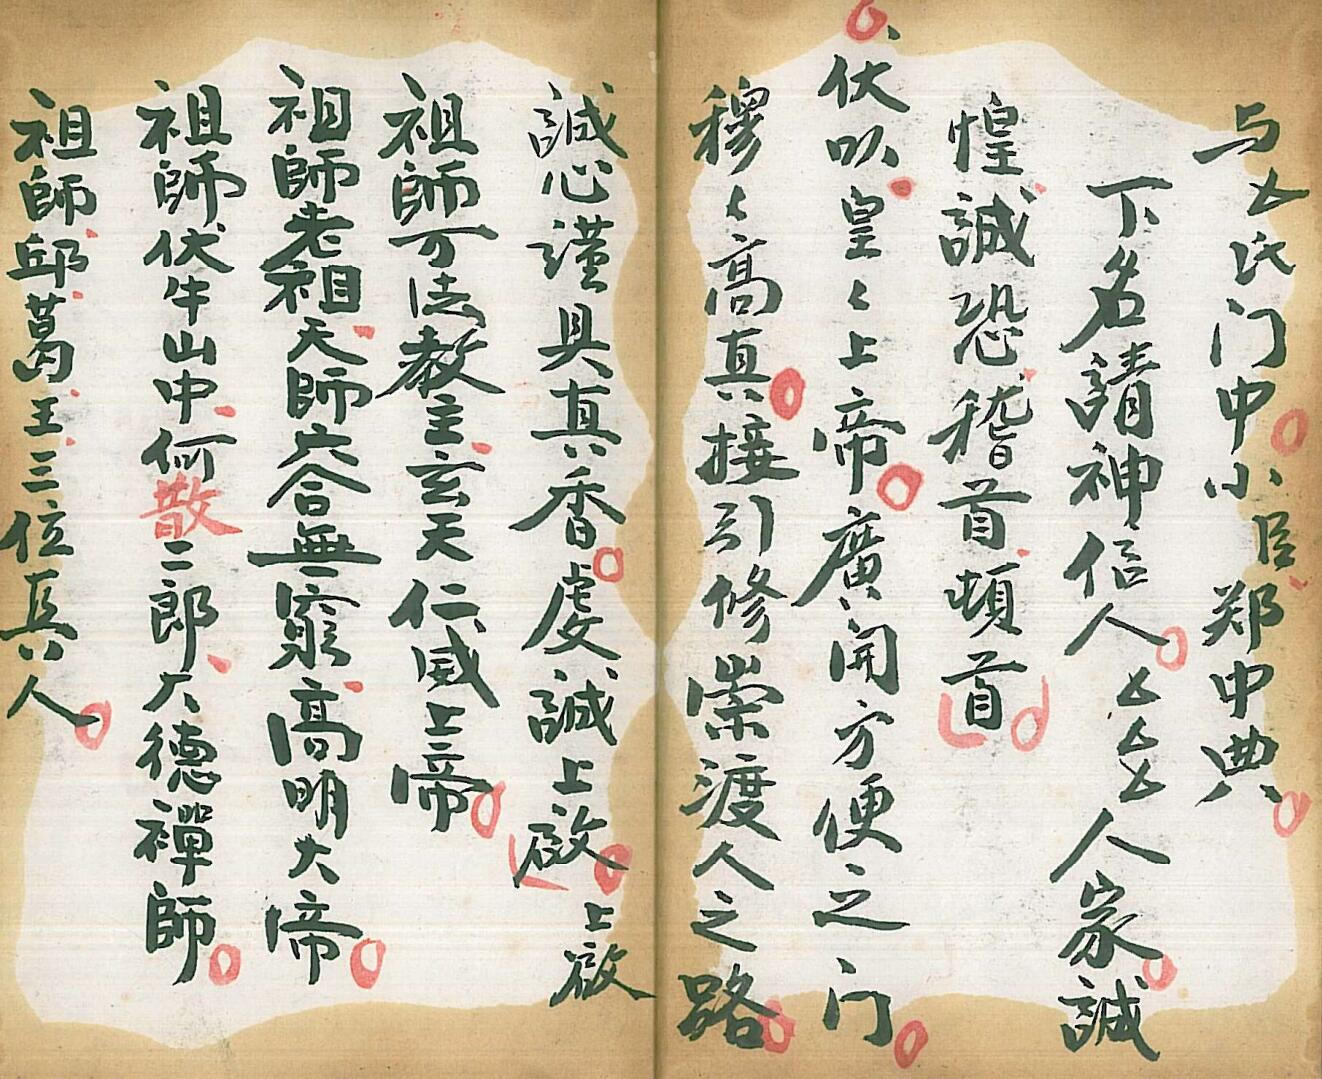 与厶氏门中小臣郑中典
下名請神信人厶厶厶人家誠
惶誠恐稽首頓首
伏以皇〻上帝廣開方便之门
穆〻高真接引修崇渡人之路
誠心谨具真香虔誠上啟上啟
祖師万法教主玄天仁威上帝
祖師老祖天師六合無窮高明大帝
祖師伏牛山中何散二郎大德禪師
祖師邱葛王三位真人